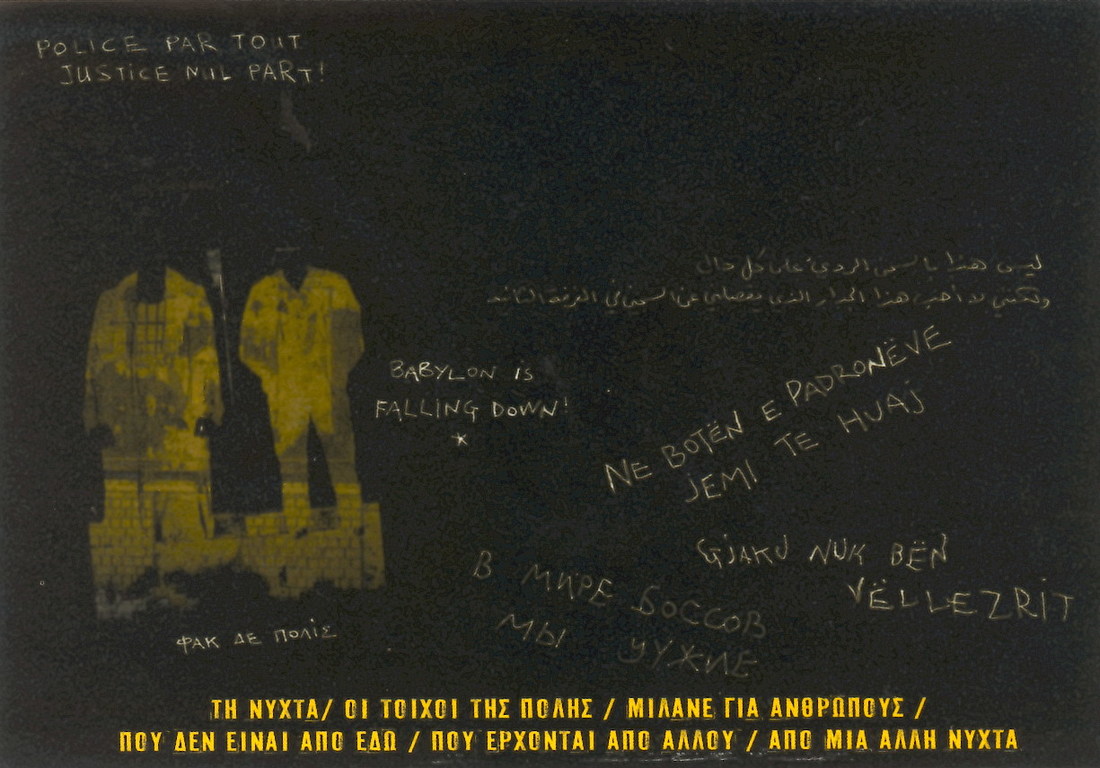 POLICE PAR TOUT
JUSTICE NUL PART!
ليس هذا بالسجن الردئ على كل حال
ولكنني لا أحب هذا الجدار الذي يفصلني عن السجين في الغرفة الثانية
BABYLON IS
FALLING DOWN!
NE BOTËN E PADRONËVE
JEMI TE HUAJ
GJAKU NUK BËN
VËLLEZRIT
В МИРЕ БОССОВ
МЫ ЧУЖИЕ
ΦΑΚ ΔΕ ΠΟΛΙΣ
ΤΗ ΝΥΧΤΑ/ ΟΙ ΤΟΙΧΟΙ ΤΗΣ ΠΟΛΗΣ / ΜΙΛΑΝΕ ΓΙΑ ΑΝΘΡΩΠΟΥΣ /
ΠΟΥ ΔΕΝ ΕΙΝΑΙ ΑΠΟ ΕΔΩ / ΠΟΥ ΕΡΧΟΝΤΑΙ ΑΠΟ ΑΛΛΟΥ / ΑΠΟ ΜΙΑ ΑΛΛΗ ΝΥΧΤΑ